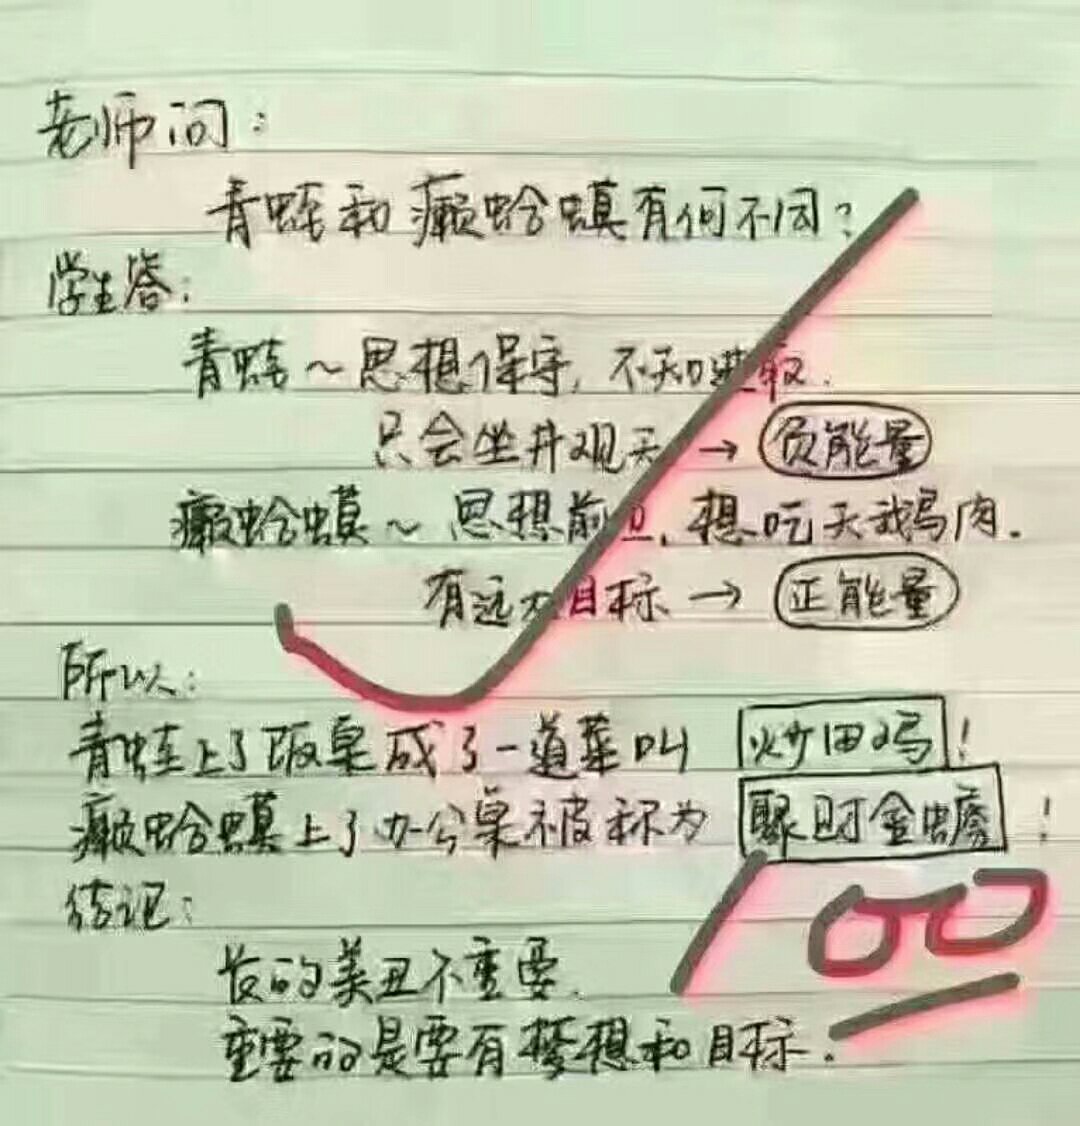 老师问：
青蛙和癞蛤蟆有何不同？
学生答：
青蛙～思想保守，不知进取．
只会坐井观天 → 负能量
癞蛤蟆～思想前卫，想吃天鹅肉．
有远大目标 → 正能量
所以：
青蛙上了饭桌成了一道菜叫 炒田鸡！
癞蛤蟆上了办公桌被称为 聚财金蟾！
结论：
长的美丑不重要．
重要的是要有梦想和目标．
100